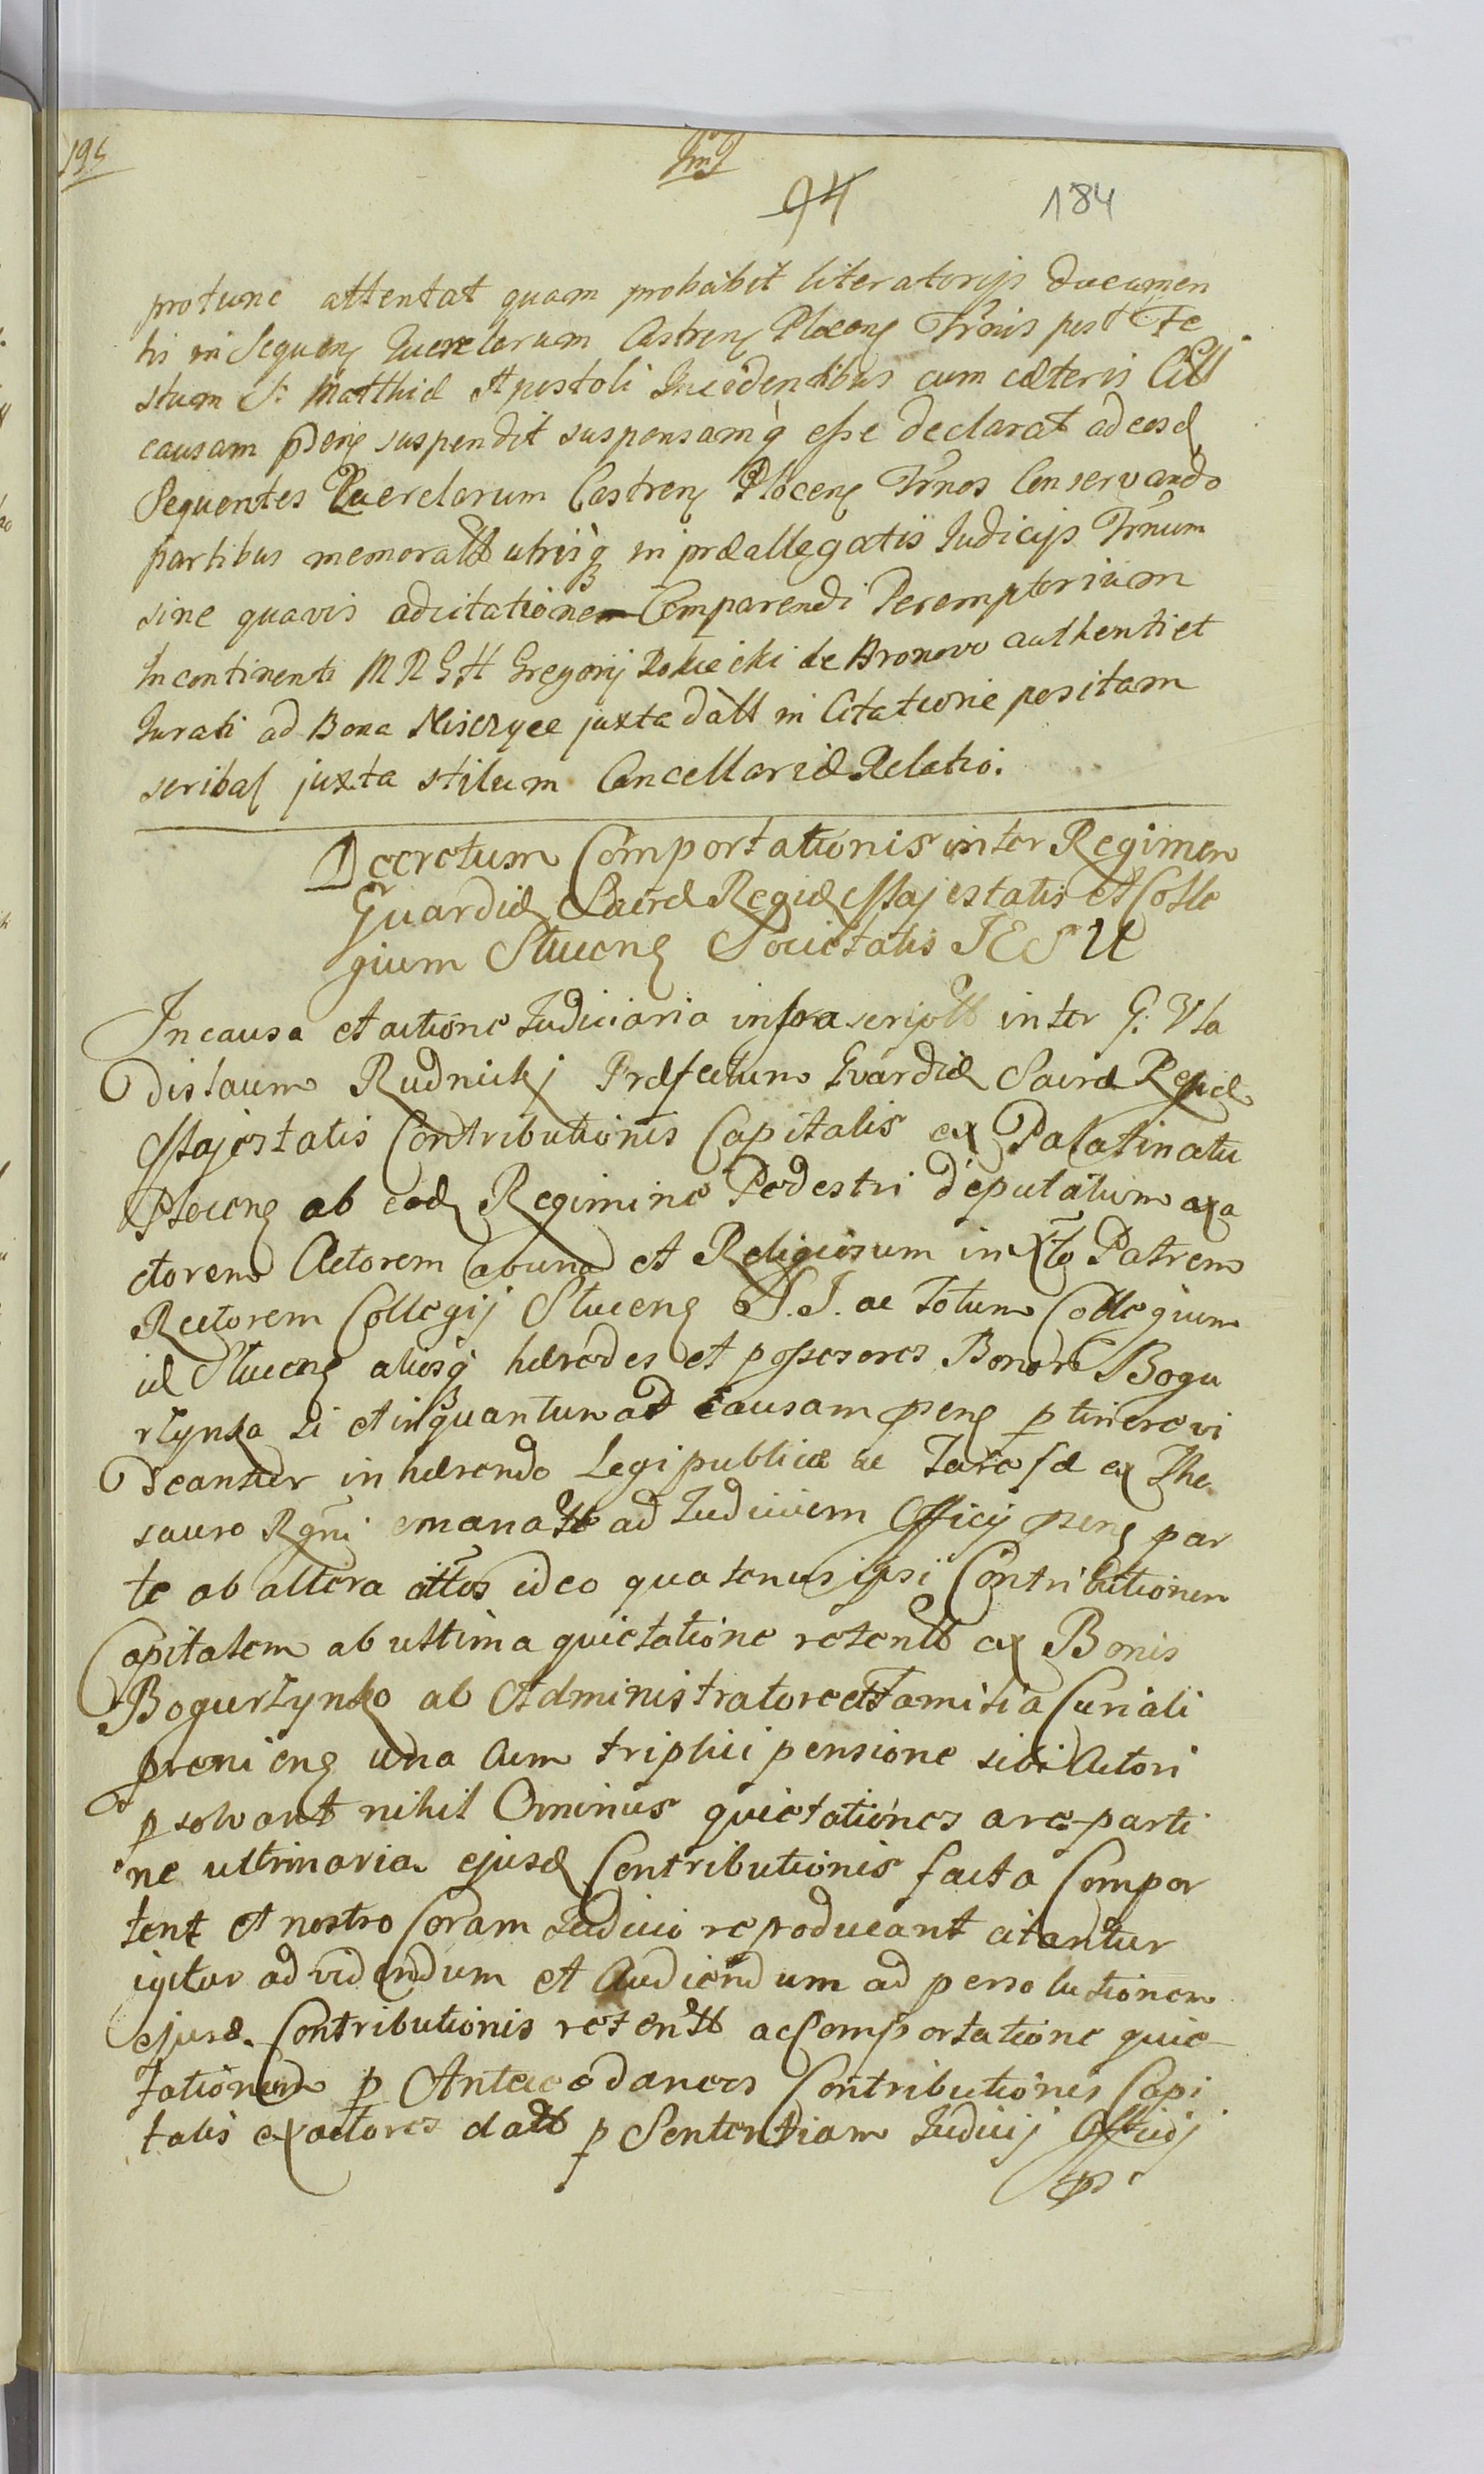 195
94
184
protunc attentat quam probabit literatorijs documen
tis in Sequenꝫ Querelarum Castrenꝫ Plocenꝫ Trnis post Fe
stum S: Matthiæ Apostoli Incidentibus cum cæteris Citt
causam pndenꝫ suspendit suspensamq̀ esse declarat ad eosd
Sequentes Querelarum Castrenꝫ Plocenꝫ Trnos Conservando
partibus memoratt utrisq̀ in præallegatis Judicijs Trnum
sine quavis adcitatione Comparendi Peremptorium
Incontinenti M R G H Gregorij Rokicki de Bronovo authenti et
Jurati ad Bona Niszczyce juxta datt in Citatione positam
scribal juxta stilum Cancellariæ Relatio.
Decretum Comportationis inter Regimen
Guardiæ Sacræ Regiæ Majestatis et Colle
gium Plocenꝫ Societatis JESU
In causa et actione Judiciaria infrascriptt inter G: Vla
dislaum Rudnickj Præfectum Guardiæ Sacræ Regiæ
Majestatis Contributionis Capitalis ex Palatinatu
Plocenꝫ ab eod Regimine Pedestri deputatum exa
ctorem Actorem ab una et Religiosum in Xto Patrem
Rectorem Collegij Plocenꝫ S. J. ac totum Collegium
id Plocenꝫ aliosq̀ hæredes et possesores Bonor Bogu
rzynka si et in quantum ad causam psenꝫ ptinere vi
deantur inhærendo Legi publicæ ac Tariffæ ex The
sauro Rgni emanatt ad Judicium Officij psenꝫ par
te ab altera cittos ideo quatenus ipsi Contributionem
Capitalem ab ultima quietatione retentt ex Bonis
Bogurzynko ab Administratore et Familia Curiali
provenienꝫ una cum triplici pensione sibi Actori
psolvant nihil Ominus quietationes a re parti
ne ultimaria ejusd Contributionis facta Compor
tent et nostro Coram Judicio reproducant citantur
igitur ad videndum et Audiendum ad persolutionem
ejusd. Contributionis retentt ac Comportatione quie
tationum p Antecedaneos Contributionis Capi
talis exactores datt p Sententiam Judicij Officij
ps